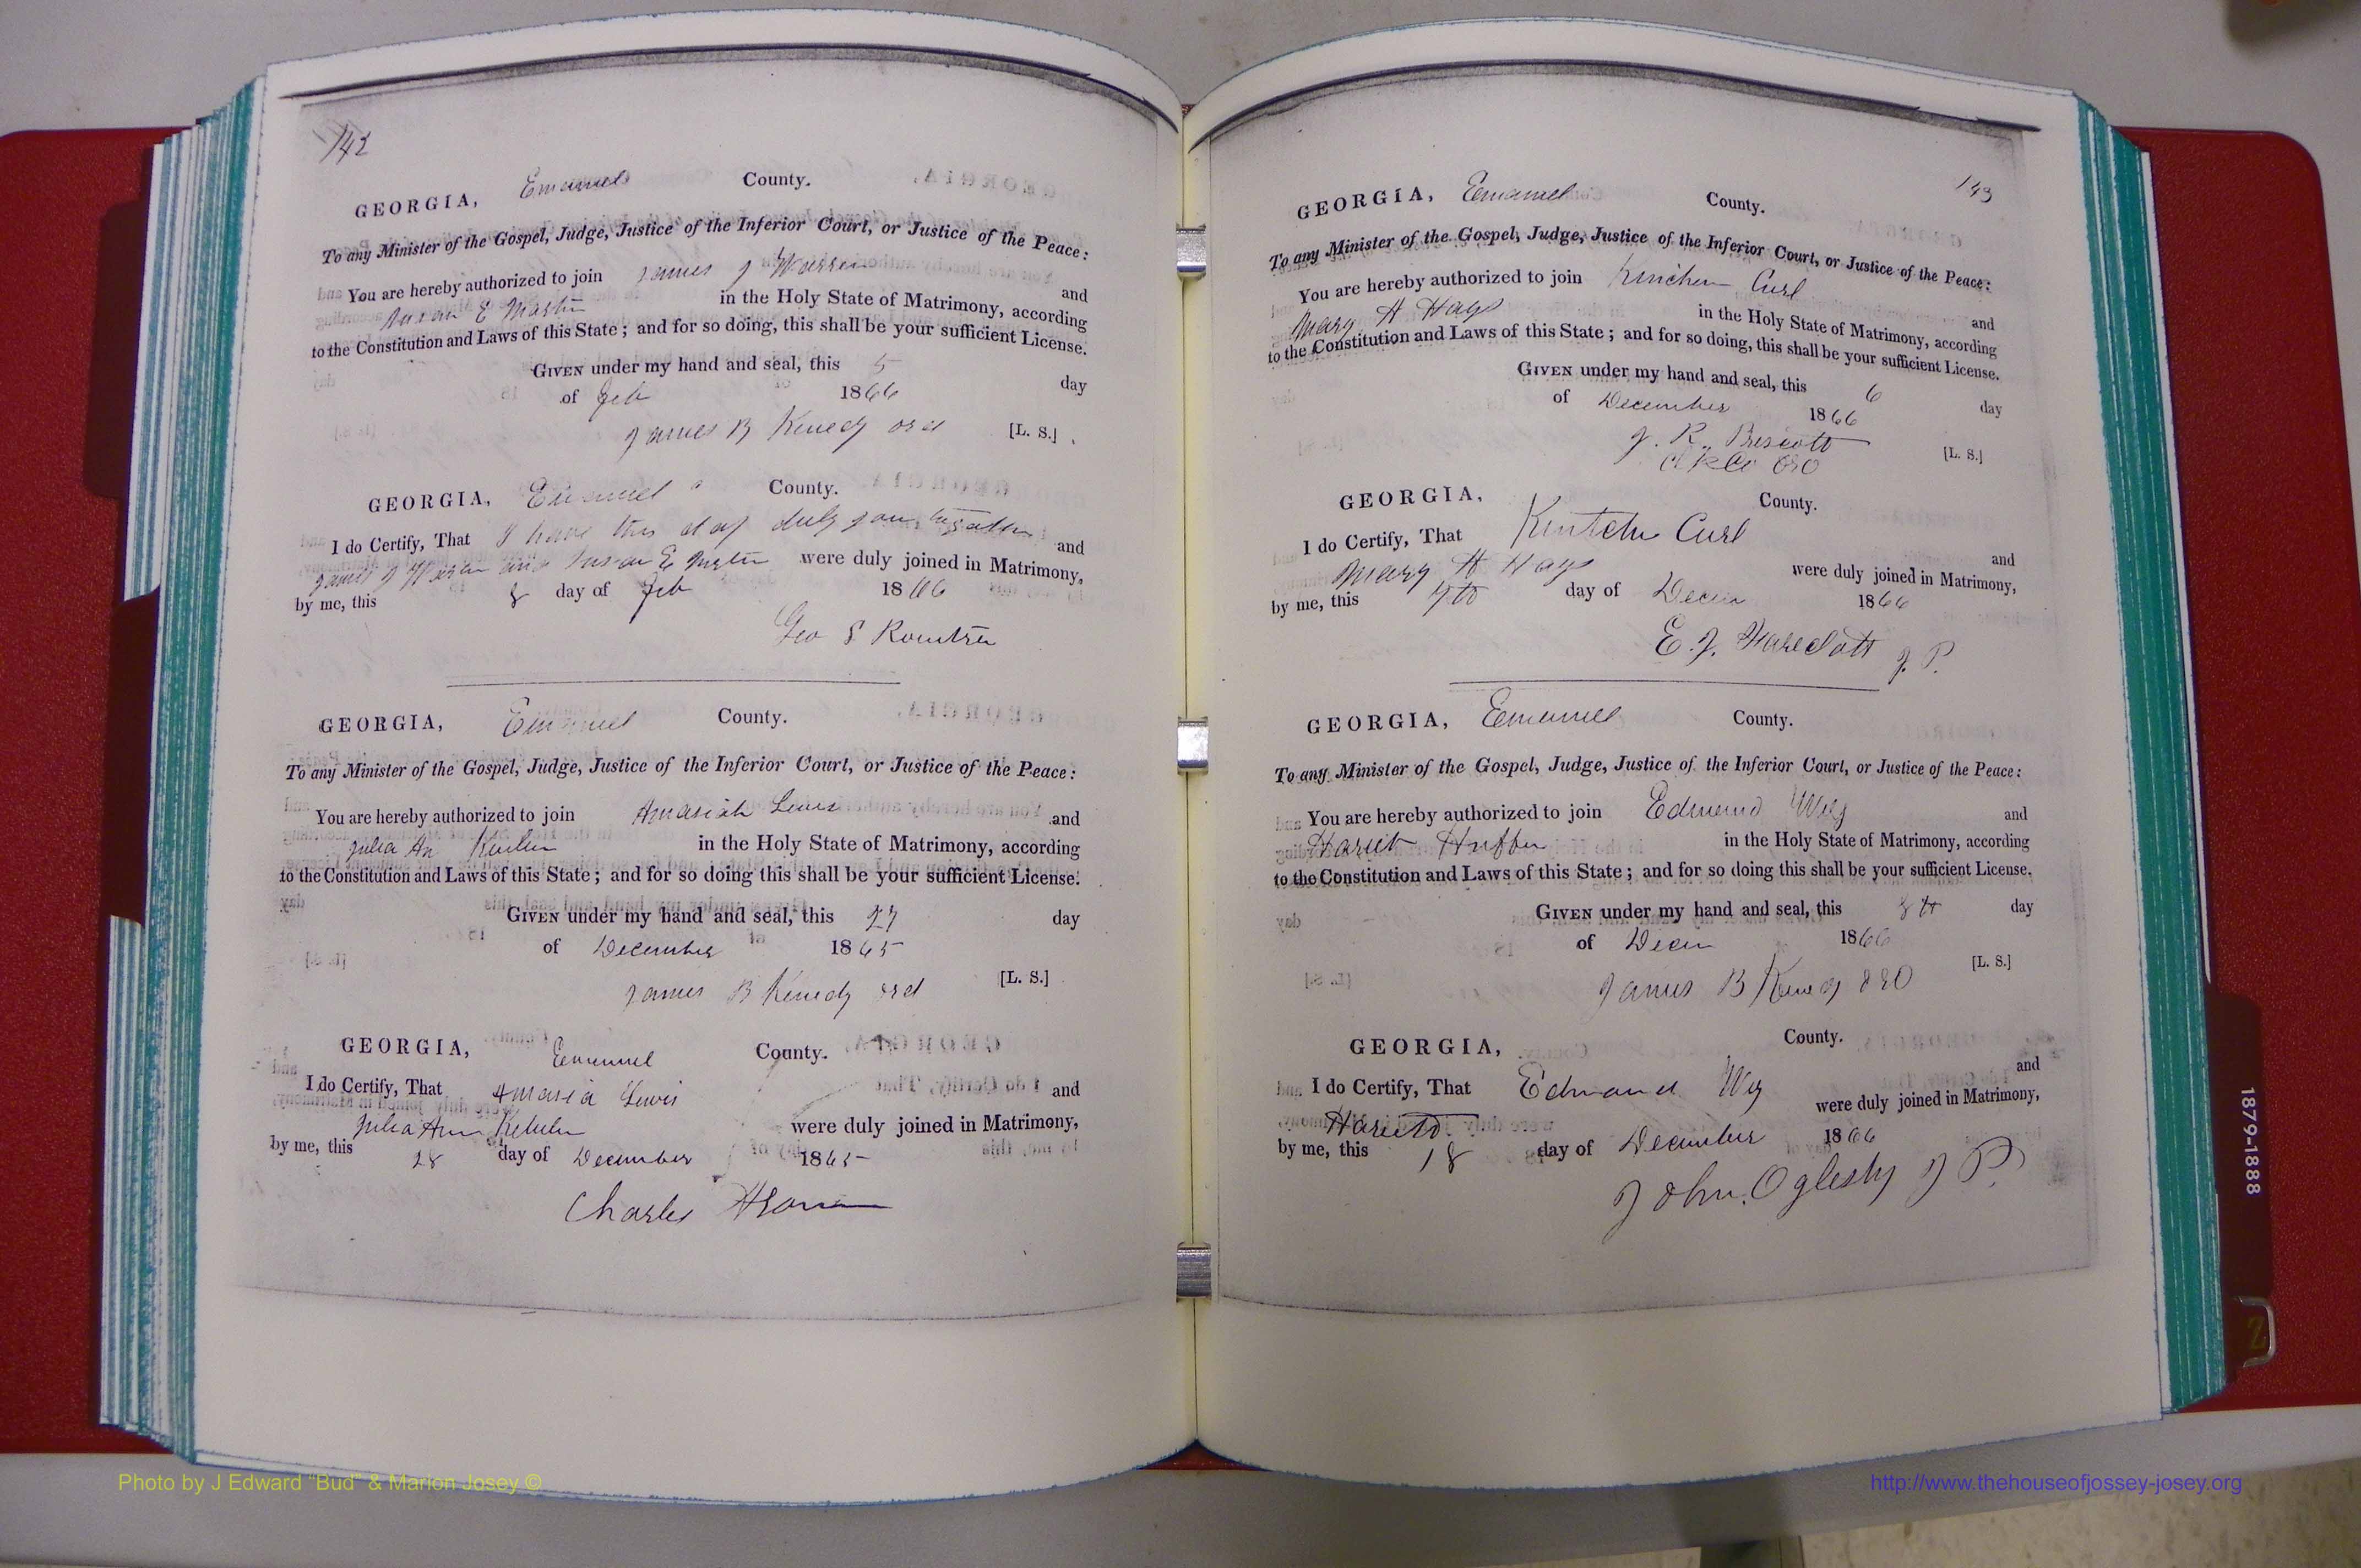 142
GEORGIA, Emanuel County.
To any Minister of the Gospel, Judge, Justice of the Inferior Court, or Justice of the Peace:
You are hereby authorized to join James J Warren and
Susan E Martin in the Holy State of Matrimony, according
to the Constitution and Laws of this State; and for so doing, this shall be your sufficient License.
GIVEN under my hand and seal, this 5 day
of Feb 1866
James B Kenedy ord [L. S.]
GEORGIA, Emanuel County.
I do Certify, That I have this day duly and
James J and Susan E were duly joined in Matrimony,
by me, this 8 day of Feb 1866
Geo S Rountree
GEORGIA, Emanuel County.
To any Minister of the Gospel, Judge, Justice of the Inferior Court, or Justice of the Peace:
You are hereby authorized to join Amasiah Lewis and
Julia An in the Holy State of Matrimony, according
to the Constitution and Laws of this State; and for so doing this shall be your sufficient License.
GIVEN under my hand and seal, this 27 day
of December 1865
James B Kenedy ord [L. S.]
GEORGIA, Emanuel County.
I do Certify, That Amasia Lewis and
Julia Ann were duly joined in Matrimony,
by me, this 28 day of December 1865
Charles
143
GEORGIA, Emanuel County.
To any Minister of the Gospel, Judge, Justice of the Inferior Court, or Justice of the Peace:
You are hereby authorized to join Kinchen Curl and
Mary H Hays in the Holy State of Matrimony, according
to the Constitution and Laws of this State; and for so doing, this shall be your sufficient License.
GIVEN under my hand and seal, this 6 day
of December 1866
J. R. Prescott [L. S.]
GEORGIA, County.
I do Certify, That Kintchen Curl and
Mary H Hays were duly joined in Matrimony,
by me, this day of Decem 1866
E. J. J. P.
GEORGIA, Emanuel County.
To any Minister of the Gospel, Judge, Justice of the Inferior Court, or Justice of the Peace:
You are hereby authorized to join Edmund and
Hariet in the Holy State of Matrimony, according
to the Constitution and Laws of this State; and for so doing this shall be your sufficient License.
GIVEN under my hand and seal, this day
of Decem 1866
James B Kenedy [L. S.]
GEORGIA, County.
I do Certify, That Edmund and
were duly joined in Matrimony,
by me, this 18 day of December 1866
John Oglesby J P.
1879-1888
Photo by J Edward "Bud" & Marion Josey ©
http://www.thehouseofjossey-josey.org